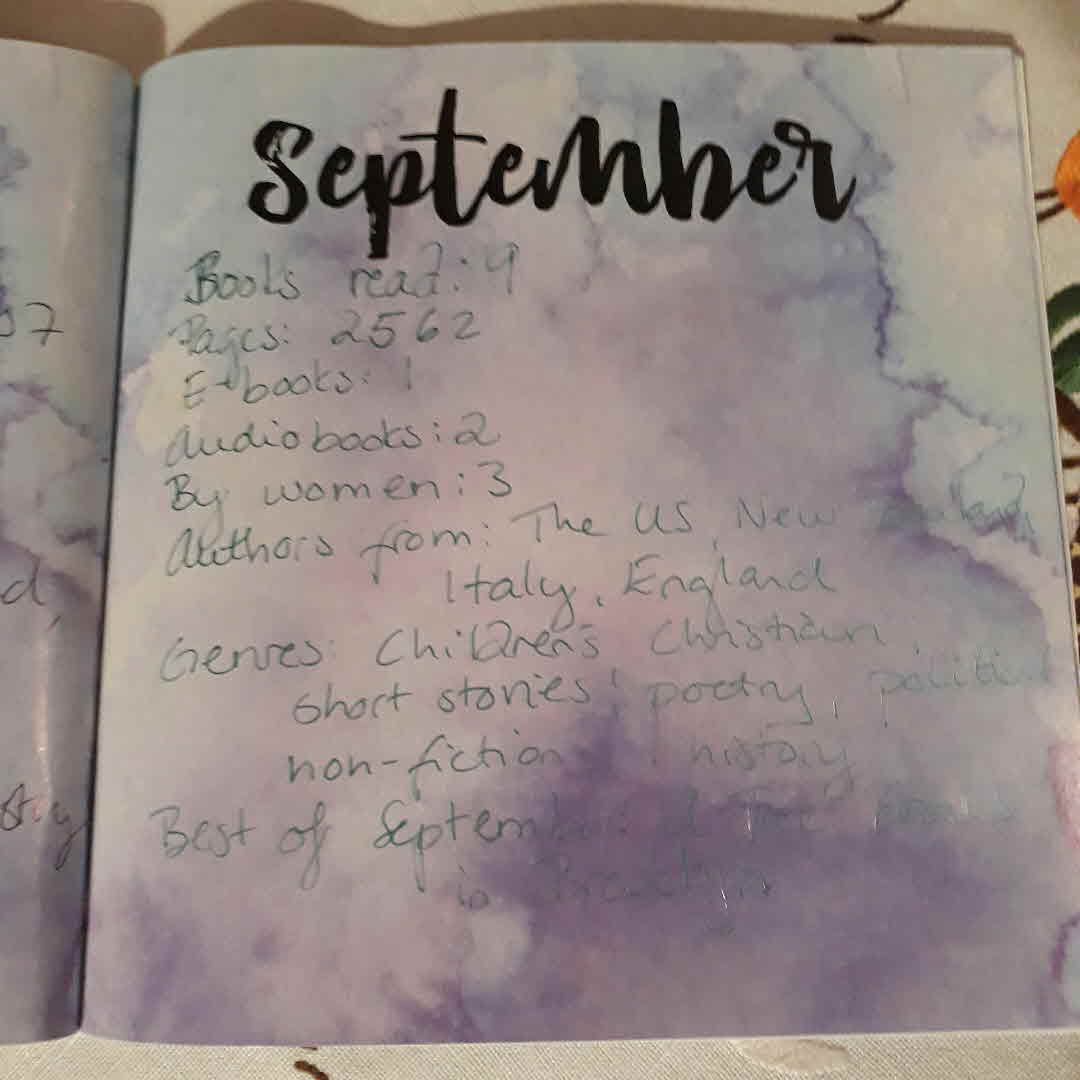 September
Books read: 9
Pages: 2562
E-books: 1
Audiobooks: 2
By women: 3
Authors from: The US, New Zealand,
Italy, England
Genres: Children's Christian,
Short stories, poetry, political
non-fiction, history
Best of September: A Tree Grows
in Brooklyn